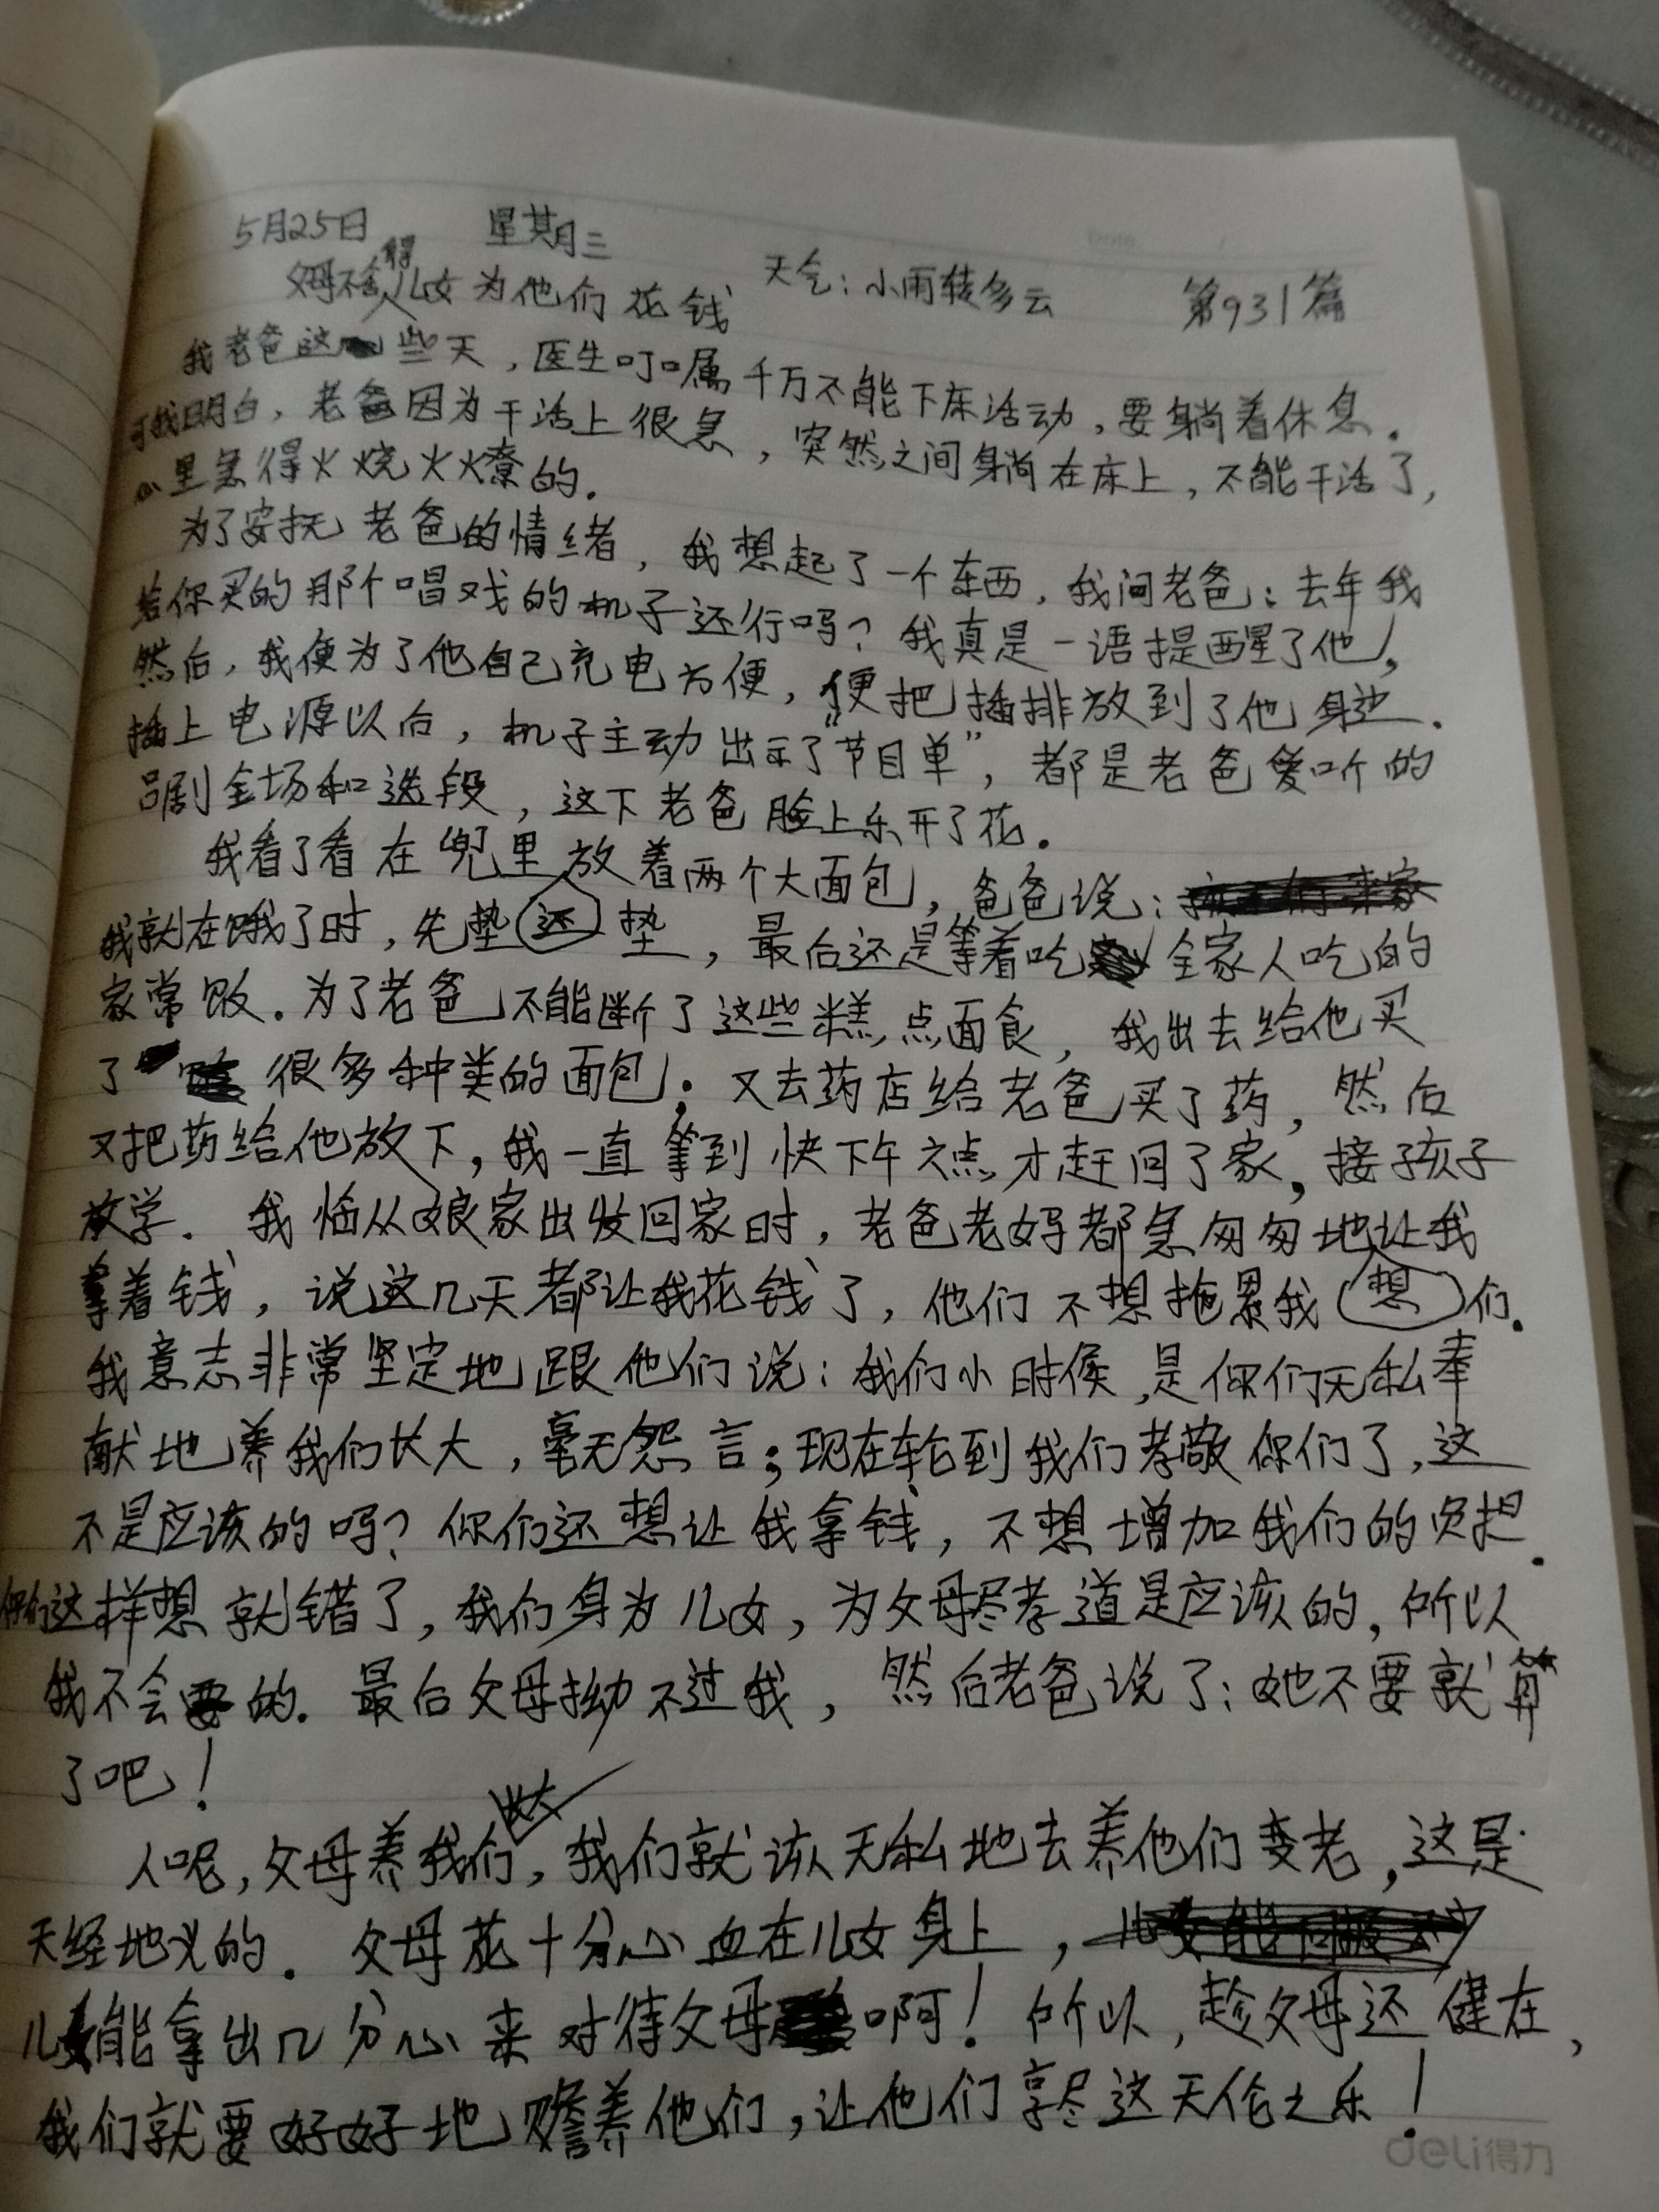 5月25日 星期三 天气：小雨转多云 第931篇
父母不舍得儿女为他们花钱
我老爸这些天，医生叮嘱千万不能下床活动，要躺着休息。
可我明白，老爸因为干活上很急，突然之间躺在床上，不能干活了，
心里急得火烧火燎的。
为了安抚老爸的情绪，我想起了一个东西，我问老爸：去年我
给你买的那个唱戏的机子还行吗？我真是一语提醒了他，
然后，我便为了他自己充电方便，便把插排放到了他身边．
插上电源以后，机子主动出示了“节目单”，都是老爸爱听的
吕剧全场和选段，这下老爸脸上乐开了花．
我看了看在兜里放着两个大面包，爸爸说：
我就在饿了时，先垫还垫，最后还是等着吃全家人吃的
家常饭．为了老爸不能断了这些糕点面食，我出去给他买
了很多种类的面包；又去药店给老爸买了药，然后
又把药给他放下，我一直等到快下午六点才赶回了家，接孩子
放学．我临从娘家出发回家时，老爸老妈都急匆匆地让我
拿着钱，说这几天都让我花钱了，他们不想拖累我想们．
我意志非常坚定地跟他们说：我们小时候，是你们无私奉
献地养我们长大，毫无怨言；现在轮到我们孝敬你们了，这
不是应该的吗？你们还想让我拿钱，不想增加我们的负担．
你们这样想就错了，我们身为儿女，为父母尽孝道是应该的，所以
我不会要的．最后父母拗不过我，然后老爸说了：她不要就算
了吧！
人呢，父母养我们，我们就该无私地去养他们变老，这是
天经地义的．父母花十分心血在儿女身上，
儿女能拿出几分心来对待父母啊！所以，趁父母还健在，
我们就要好好地赡养他们，让他们享尽这天伦之乐！
deli得力